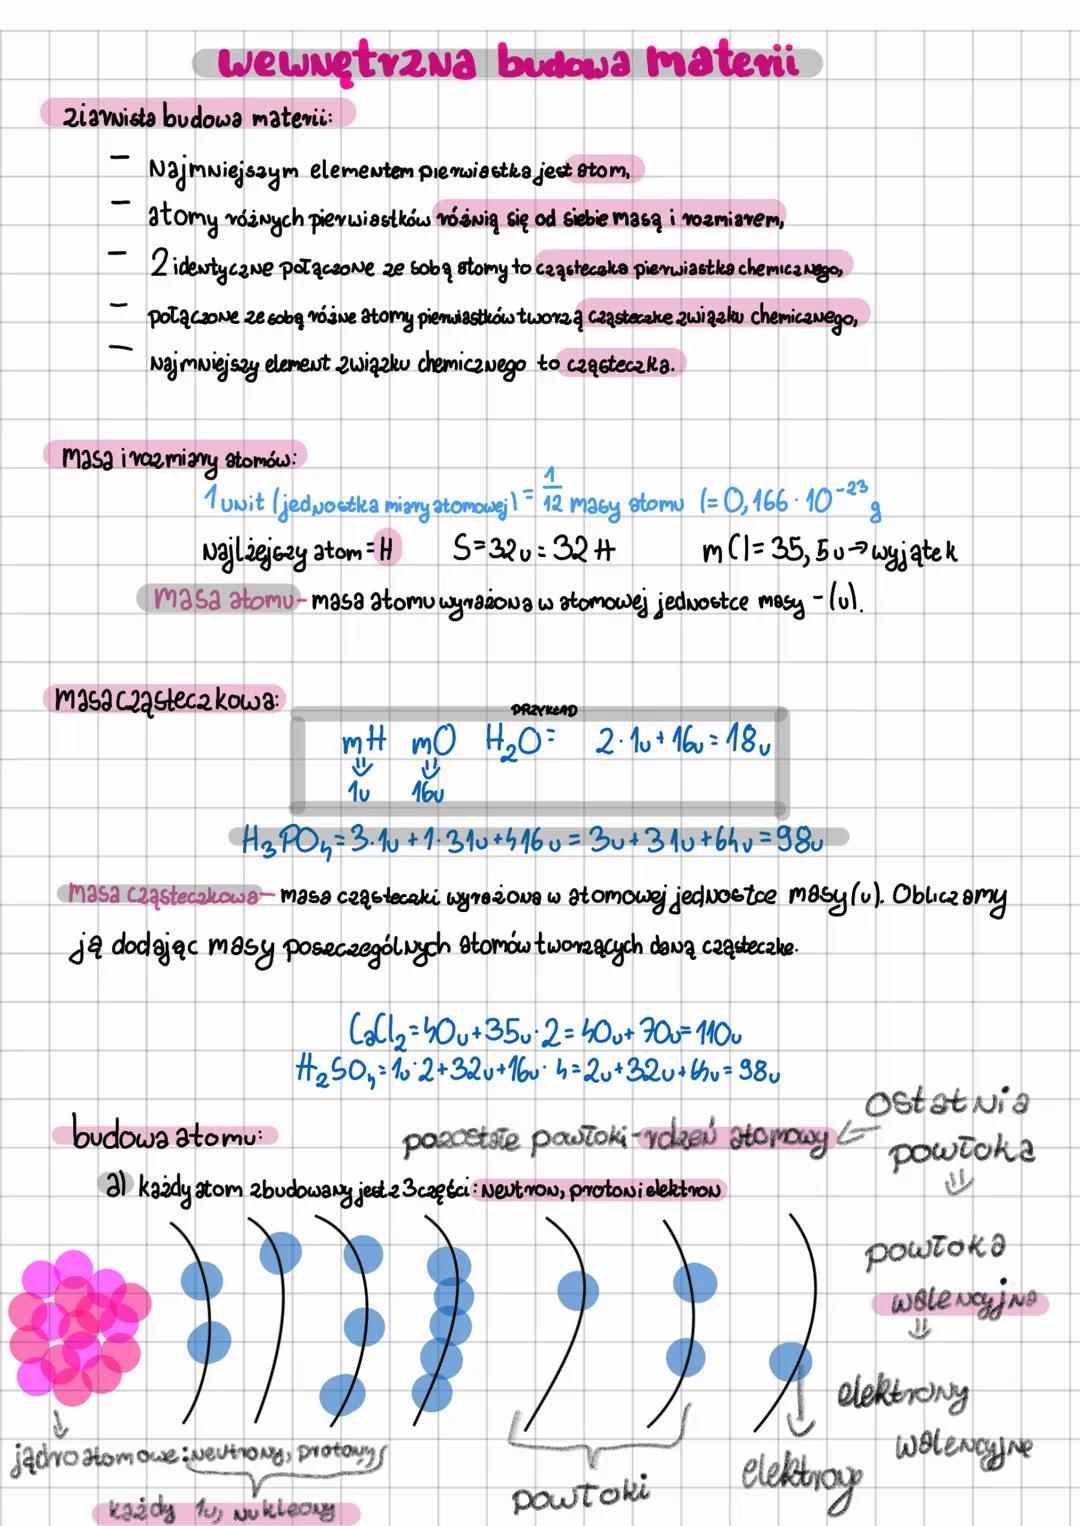 wewnętrzna budowa materii
ziarnista budowa materii:
– Najmniejszym elementem pierwiastka jest atom,
– atomy różnych pierwiastków różnią się od siebie masą i rozmiarem,
– 2 identyczne połączone ze sobą atomy to cząsteczka pierwiastka chemicznego,
– połączone ze sobą różne atomy pierwiastków tworzą cząsteczke związku chemicznego,
– Najmniejszy element związku chemicznego to cząsteczka.
masa i rozmiary atomów:
1 unit (jednostka miary atomowej) = 1/12 masy atomu (= 0,166 · 10⁻²³ g
Najlżejszy atom = H S = 32u = 32 H mCl = 35,5u → wyjątek
masa atomu – masa atomu wyrażona w atomowej jednostce masy – (u).
masa cząsteczkowa:
PRZYKŁAD
mH mO H₂O = 2 · 1u + 16u = 18u
⇓ ⇓
1u 16u
H₃PO₄ = 3 · 1u + 1 · 31u + 4 16u = 3u + 31u + 64u = 98u
masa cząsteczkowa – masa cząsteczki wyrażona w atomowej jednostce masy (u). Obliczamy
ją dodając masy poszczególnych atomów tworzących daną cząsteczke.
CaCl₂ = 40u + 35u · 2 = 40u + 70u = 110u
H₂SO₄ = 1u · 2 + 32u + 16u · 4 = 2u + 32u + 64u = 98u
budowa atomu:
pozostałe powłoki – rdzeń atomowy ← ostatnia
powłoka
⇓
a) każdy atom zbudowany jest z 3 części: neutron, proton i elektron
powłoka
walencyjna
⇓
elektrony
walencyjne
jądro atomowe: neutrony, protony
każdy 1u, nukleony
powłoki
elektrony